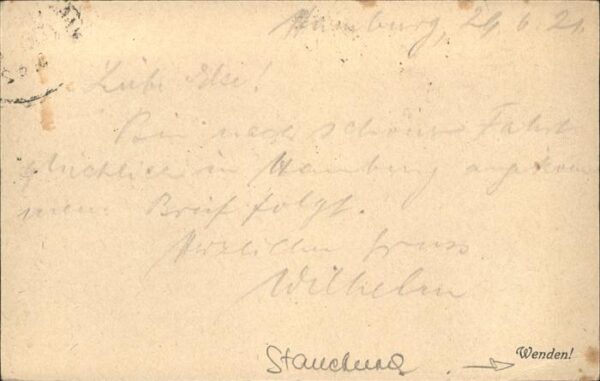 Hamburg, 29.6.21.
Liebe Else!
Bin nach schöner Fahrt
glücklich in Hamburg angekom
men. Brief folgt.
Herzlichen Gruss
Wilhelm
Wenden!